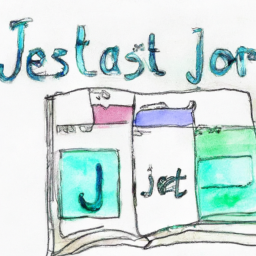 Jestast Jor
J jet